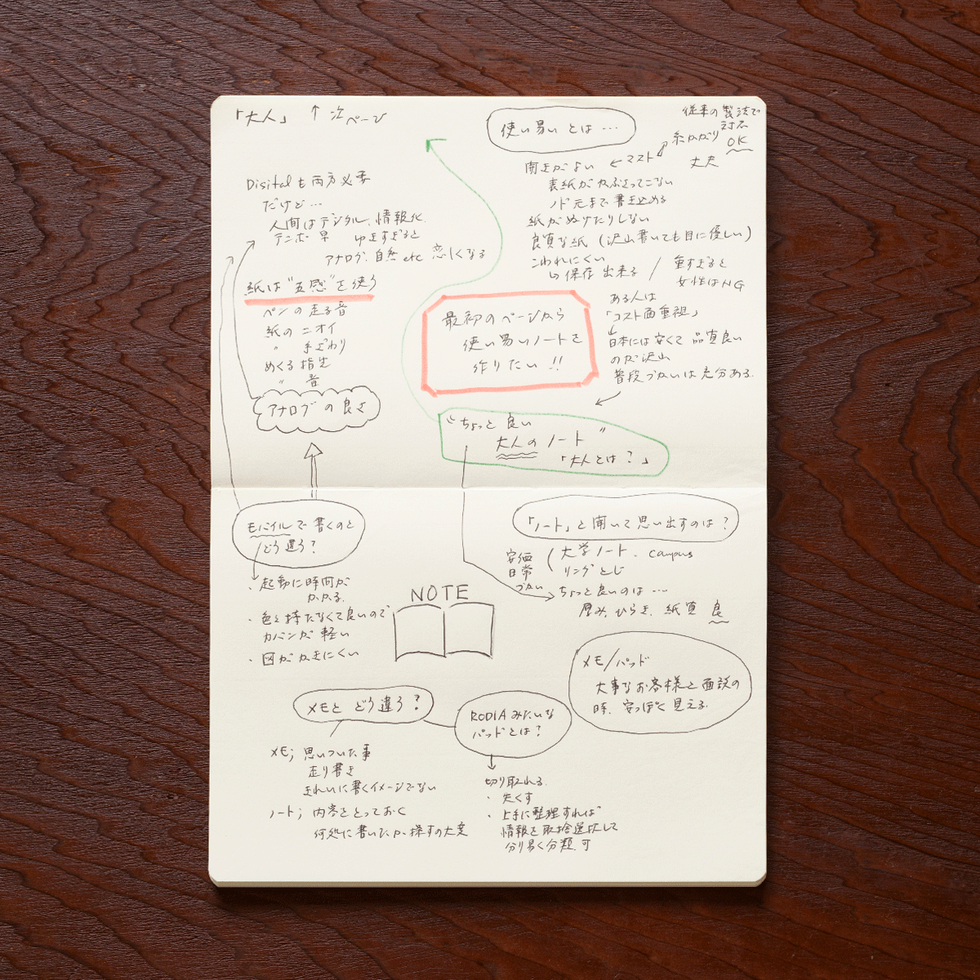 「大人」 ↑ 次ページ
Disitalも両方必要
だけど…
人間はデジタル、情報化
テンポ 早 ゆきすぎると
アナログ、自然 etc 恋しくなる
紙は"五感"を使う
ペンの走る音
紙のニオイ
〃 手ざわり
めくる指先
〃 音
アナログの良さ
使い易いとは…
従来の製法で
対応
OK
糸かがり
丈夫
開きがよい ← マスト
表紙がかぶさってこない
ノド元まで書き込める
紙がぬけたりしない
良質な紙(沢山書いても目に優しい)
こわれにくい
↳ 保存出来る / 重すぎると
女性はNG
最初のページから
使い易いノートを
作りたい!!
ある人は
「コスト面重視」
日本には安くて品質良い
のが沢山
普段づかいは充分ある。
"ちょっと良い
大人のノート"
「大人とは?」
モバイルで書くのと
どう違う?
・起動に時間が
かかる。
・色々持たなくて良いので
カバンが軽い
・図がかきにくい
NOTE
「ノート」と聞いて思い出すのは?
安価
日常
づかい
( 大学ノート、campus
リングとじ
ちょっと良いのは…
厚み、ひらき、紙質 良
メモ/パッド
大事なお客様と面談の
時、安っぽく見える。
メモと どう違う?
メモ; 思いついた事
走り書き
きれいに書くイメージでない
ノート; 内容をとっておく
何処に書いたか探すの大変
RODIAみたいな
パッドとは?
切り取れる。
・失くす
・上手に整理すれば
情報を取捨選択して
分り易く分類可